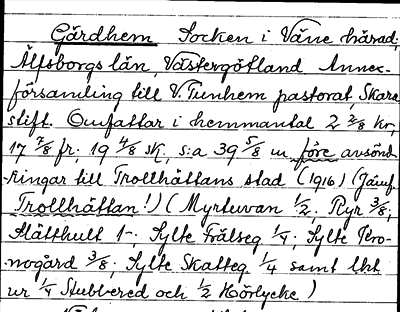 Gärdhem Socken i Väne härad,
Älfsborgs län, Västergötland Annex-
församling till V. Tunhem pastorat, Skara
stift. Omfattar i hemmantal 2 3/8 kr,
17 7/8 fr; 19 4/8 sk, s:a 39 5/8 m före avsönd-
ringar till Trollhättans stad (1916) (Jämf.
Trollhättan!) (Myrtuvan 1/2; Ryr 3/8;
Slätthult 1-; Sylte Frälseg 1/4; Sylte Kro-
nogård 3/8; Sylte Skatteg 1/4 samt
ur 1/4 Stubbered och 1/2 Hörlycke)